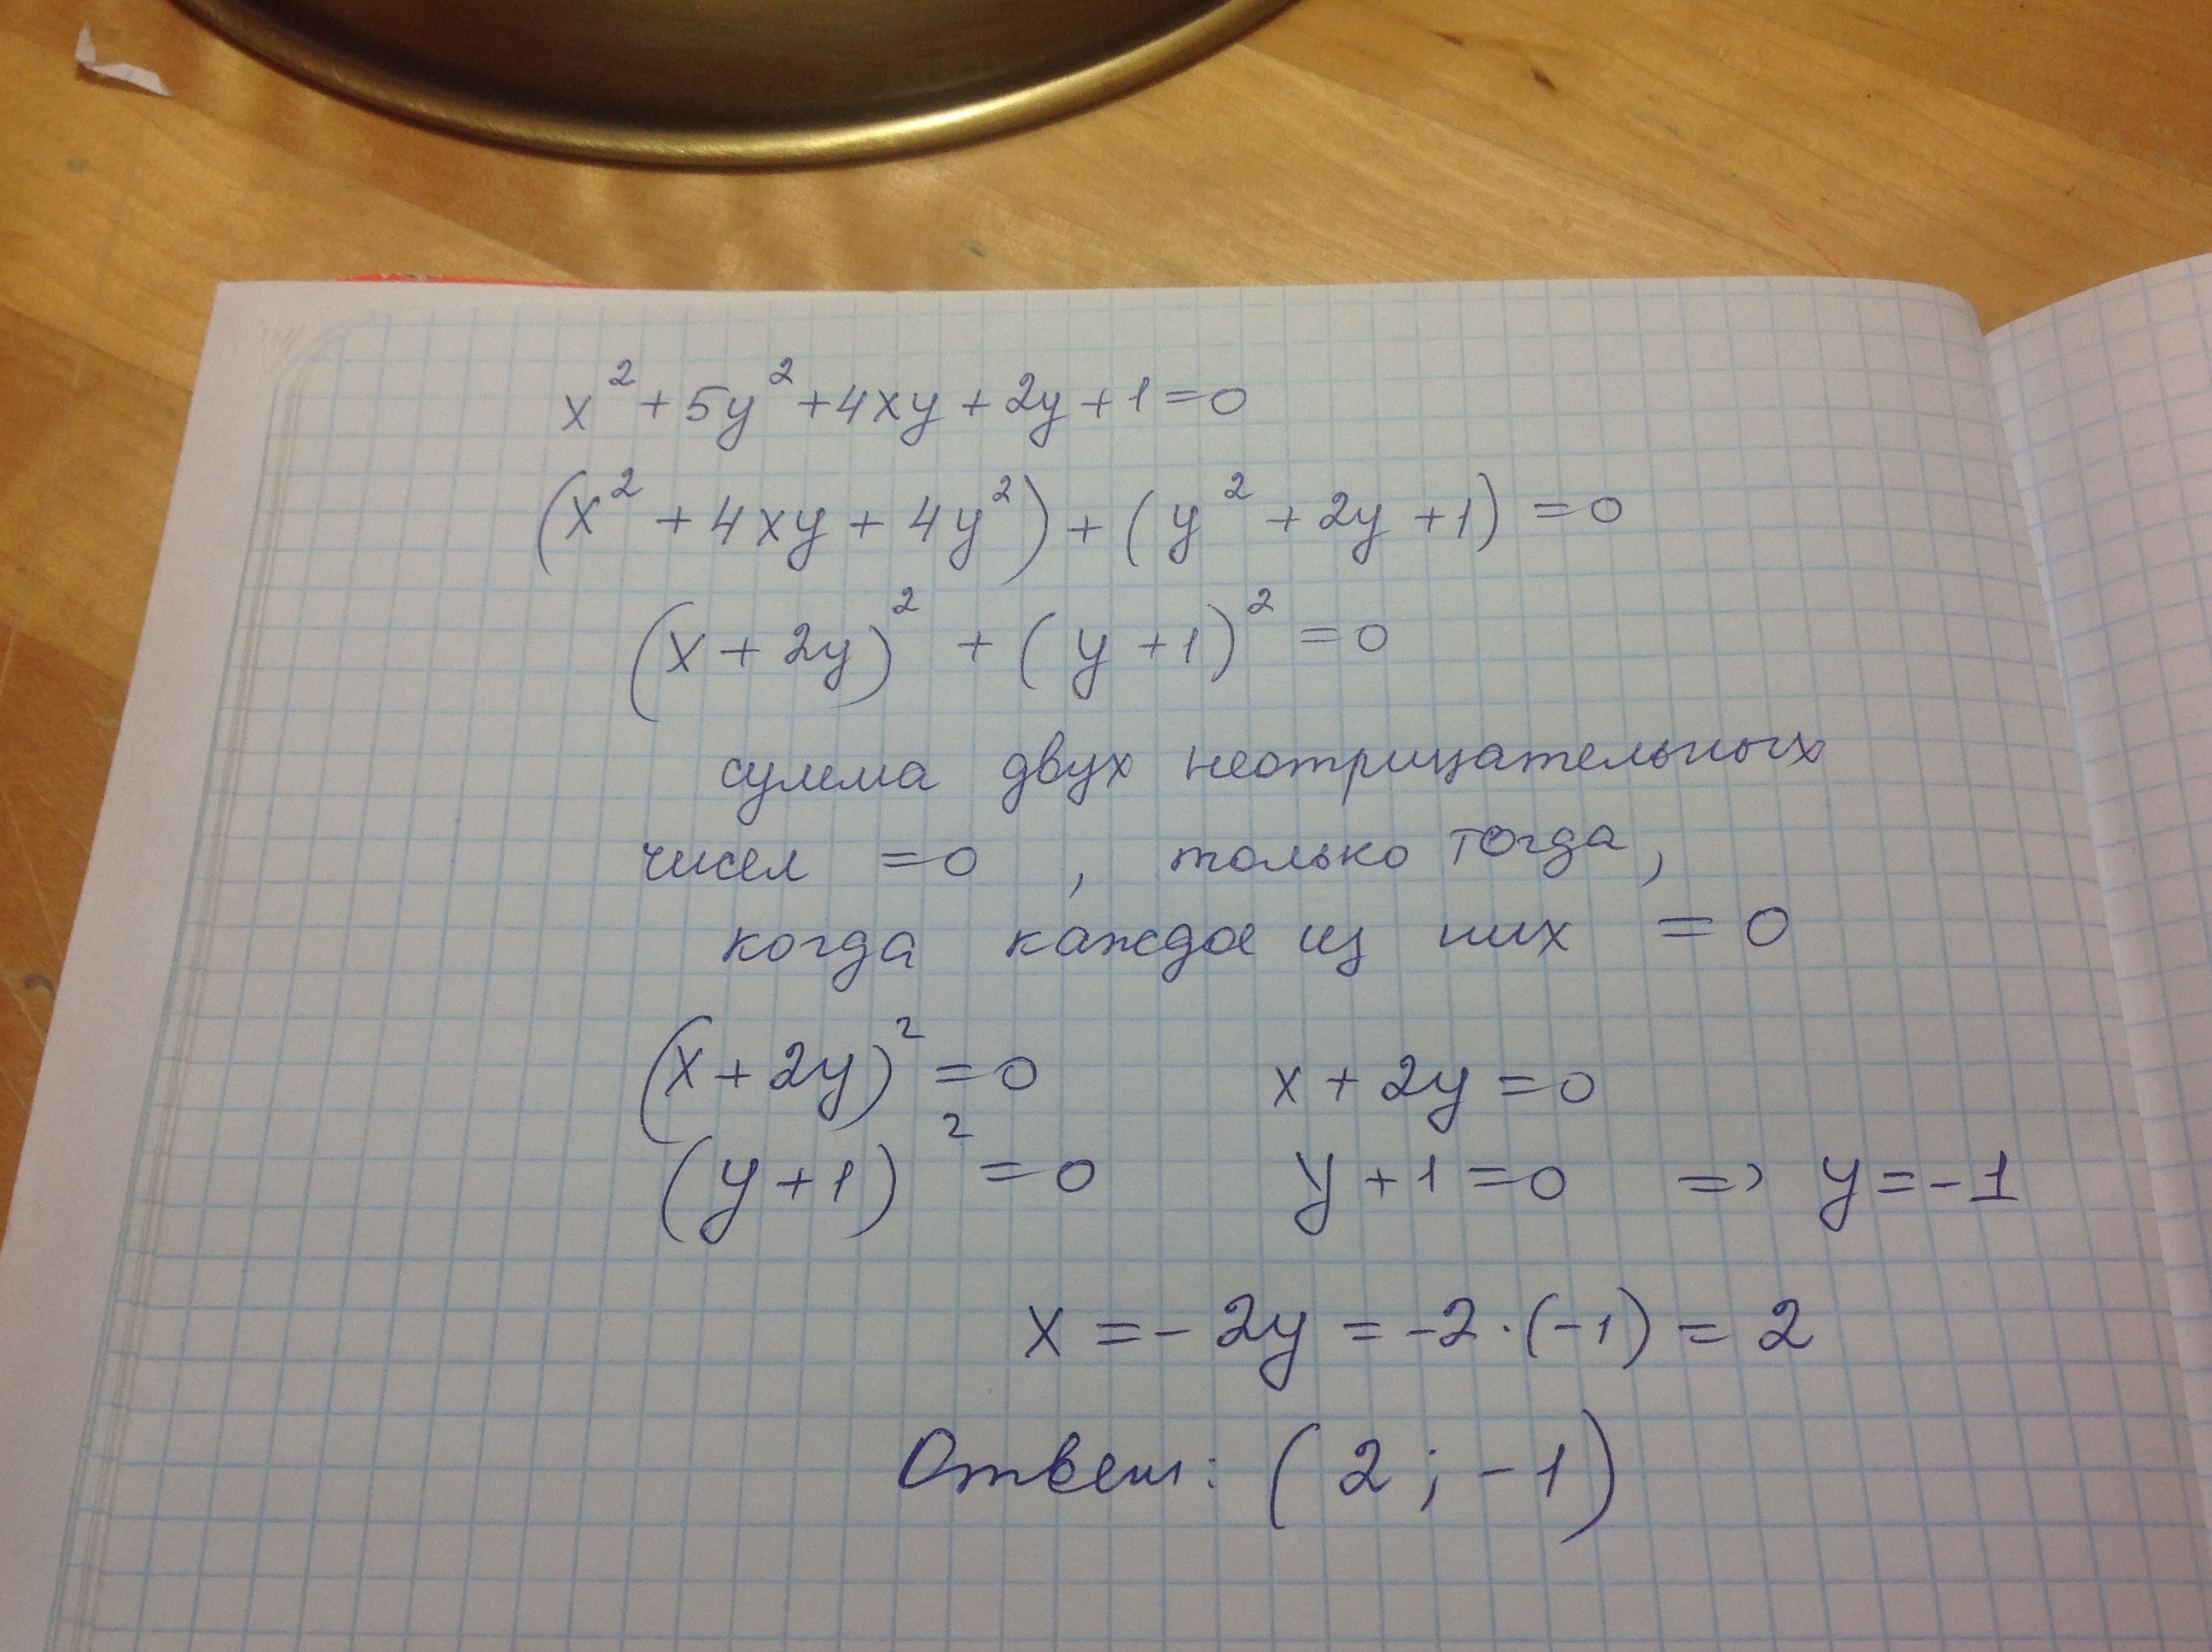 x² + 5y² + 4xy + 2y + 1 = 0
(x² + 4xy + 4y²) + (y² + 2y + 1) = 0
(x + 2y)² + (y + 1)² = 0
сумма двух неотрицательных
чисел = 0 , только тогда,
когда каждое из них = 0
(x + 2y)² = 0 x + 2y = 0
(y + 1)² = 0 y + 1 = 0 => y = -1
x = -2y = -2 · (-1) = 2
Ответ: (2 ; -1)